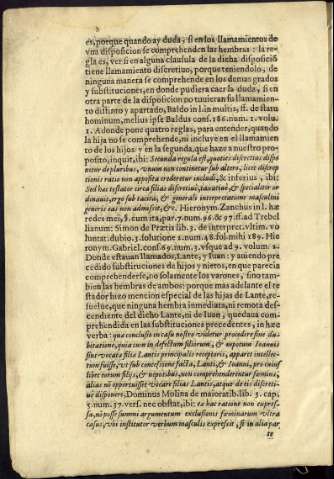 es, porque quando ay duda, si en los llamamientos de
vna disposicion se comprehenden las hembras: la re-
gla es, ver si en alguna clausula de la dicha disposició
tiene llamamiento discretiuo, porque teniendolo, de
ninguna manera se comprehende en los demas grados
y substituciones, en donde pudiera caer la duda, si en
otra parte de la disposicion no tuuieran su llamamien-
to distinto y apartado, Baldo in l. in multis, ff. de statu
hominum, melius ipse Baldus cons. 186. num. 2. volu.
1. A donde pone quatro reglas, para entender, quando
la hija no se comprehende, ni incluye en el llamamien
to de los hijos: y en la segunda, que haze a nuestro pro-
posito, inquit, ibi: Secunda regula est, quoties discretiue dispo
nitur de pluribus, & vnum non continetur sub altero, licet discrep
tionis ratio non apposita crederetur includi, & inferius, ibi:
Sed hæc testator circa filias discretiuè, taxatiuè & specialiter or
dinauit, ergo sub tacita, & generali interpretatione masculini
generis eas non admisit, &c. Hieronym. Zanchus in l. hæ
redes mei, §. cum ita, par. 7. num. 96. & 97. ff. ad Trebel
lianum: Simon de Prætis lib. 3. de interpret. vltim. vo
luntat: dubio. 3. solutione 2. num. 48. fol. mihi 189. Hie
ronym. Gabriel. cons. 69. num. 3. vsque ad 9. volum. 2.
Donde estauan llamados, Lante, y Iuan: y auiendo pre
cedido substituciones de hijos y nietos, en que parecia
comprehenderse, no solamente los varones, sino tam-
bien las hembras de ambos: porque mas adelante el te
stador hizo mencion especial de las hijas de Lante, re-
suelue, que ninguna hembra inmediata, ni remota des-
cendiente del dicho Lante, ni de Iuan, quedaua com-
prehendida en las substituciones precedentes, in hæc
verba: quæ conclusio in casu nostro videtur procedere sine du-
bitatione, quia cum in defectum filiorum, & nepotum Ioannis
sint vocatæ filiæ Lantis principalis receptoris, apparet intellec-
tum fuisse, vt sub concessione facta, Lanti, & Ioanni, pro eorum
libet eorum filijs, & nepotibus, non comprehenderentur fæminæ,
alias nō opportuisset vocare filias Lantis, atque de eis discreti-
uè disponere, Dominus Molina de maioratib. lib. 3. cap.
5. num. 37. vers. nec obstat, ibi: ex hac ratione non expres-
sa, nō posse summi argumentum exclusionis fæminarum vltra
casus, vbi institutor verbum masculis expresit, & in alia par
te